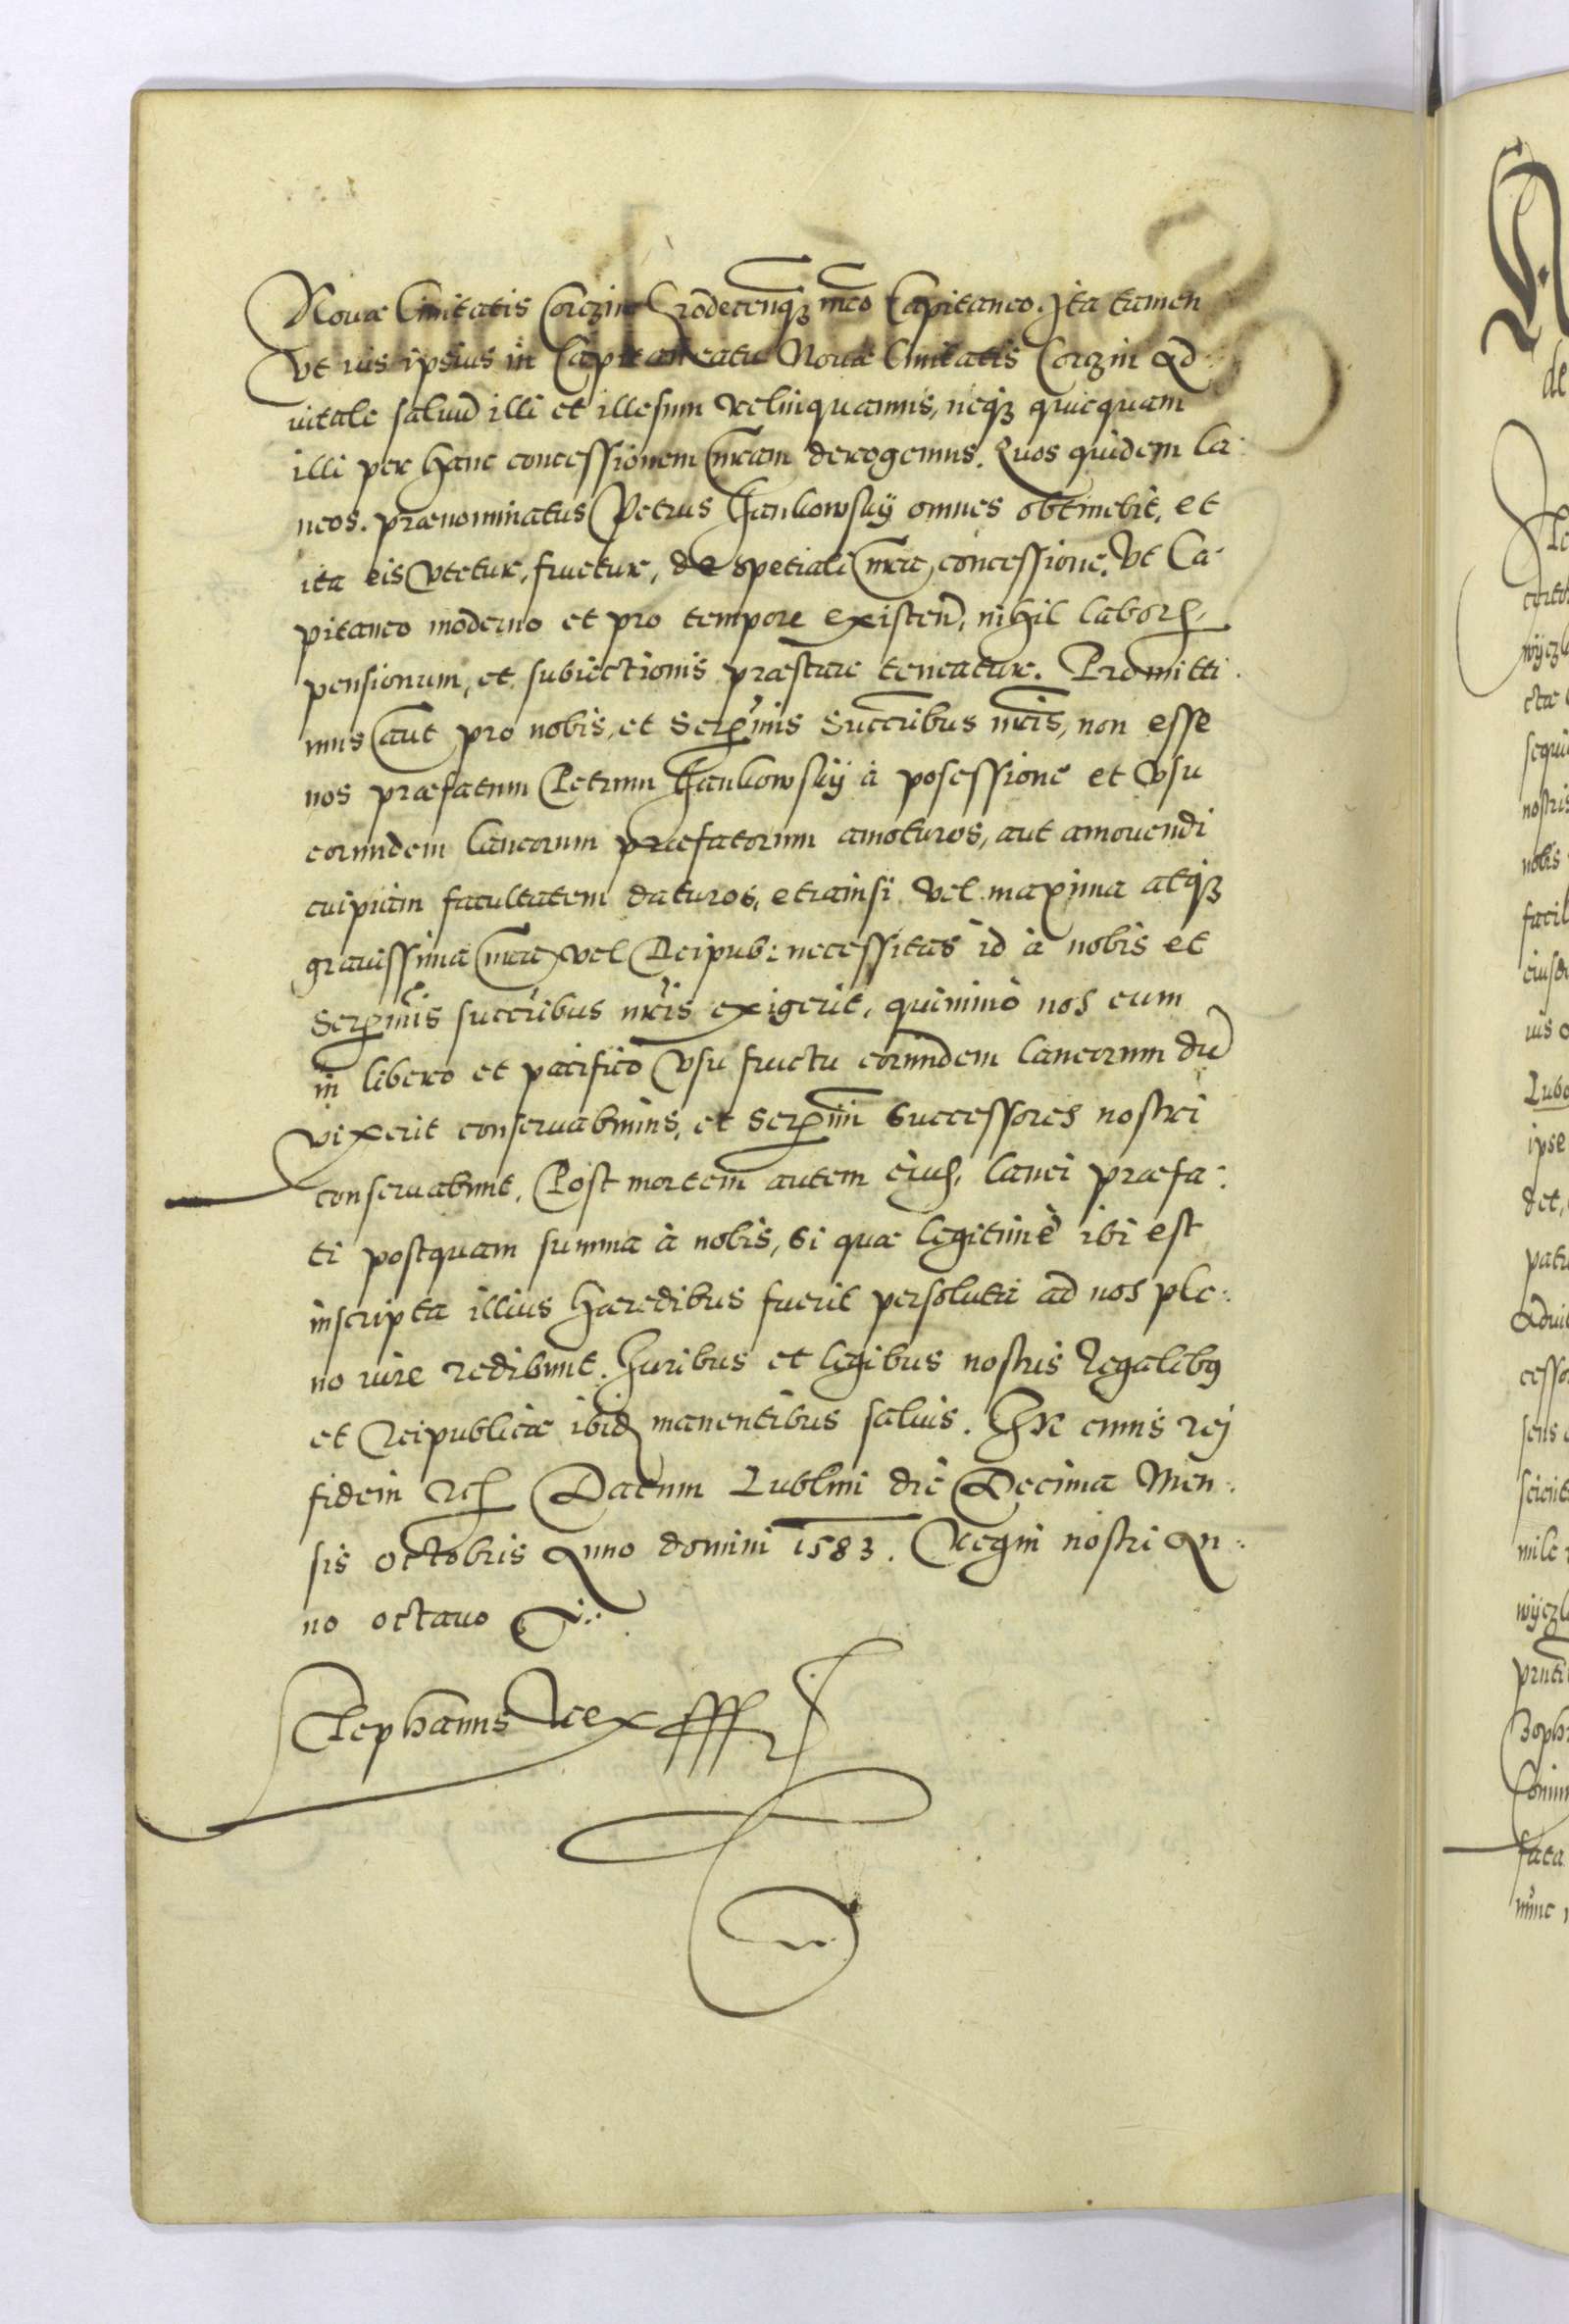 Nouæ Ciuitatis Corczin Grodecenq(ue) nr̄o Capitaneo. Ita tamen
Vt ius ipsius in Capitaneatu Nouæ Ciuitatis Corczin Ad
uitale saluū illi et illesum relinquamus, neq(ue) quicquam
illi per hanc concessionem nr̄am derogemus. Quos quidem La:
neos. prænominatus Petrus Hankowskÿ omnes obtinebit, et
ita eis vtetur, fruetur, de spetiali nr̄a, concessione. Vt Ca:
pitaneo moderno et pro tempore existen̄, nihil labor(um),
pensionum, et subiectionis præstare teneatur. Promitti:
mus aūt pro nobis, et Ser̄mis Succribus nr̄is, non esse
nos præfatum Petrum Hankowskÿ à posessione et vsu
eorundem laneorum præfatorum amoturos, aut amouendi
cuipiam facultatem daturos, etiamsi vel maxima atq(ue)
grauissima nr̄a, vel Reipub: necessitas id à nobis et
Ser̄mis succribus nr̄is exigerit, quinimò nos eum
in libero et pacifico vsu fructu eorundem laneorum dū
vixerit conseruabimus, et Ser̄mi Successores nostri
conseruabunt, Post mortem autem eius, lanei præfa:
ti postquam summa à nobis, si quæ legitimè ibi est
inscripta illius hæredibus fuerit persoluta ad nos ple:
no iure redibunt. Iuribus et legibus nostris Regalibus
et Reipublicæ ibid(em) manentibus saluis. In cuius rej
fidem etc Datum Lublini die Decima Men:
sis Octobris Anno domini 1583. Regni nostri An:
no octauo
Stephanus Rex